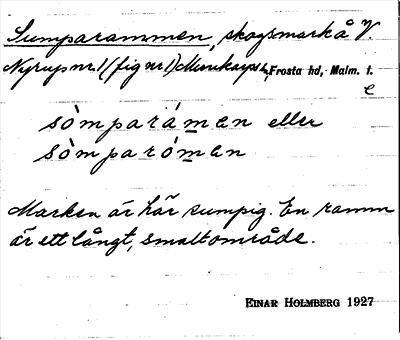 Sumparammen, skogsmark å V.
Nyrup nr 1 (fig nr 1) Munkarps s, Frosta hd, Malm. l.
e
sòmparámen eller
sòmparómen
Marken är här sumpig. En ramm
är ett långt, smalt område.
EINAR HOLMBERG 1927